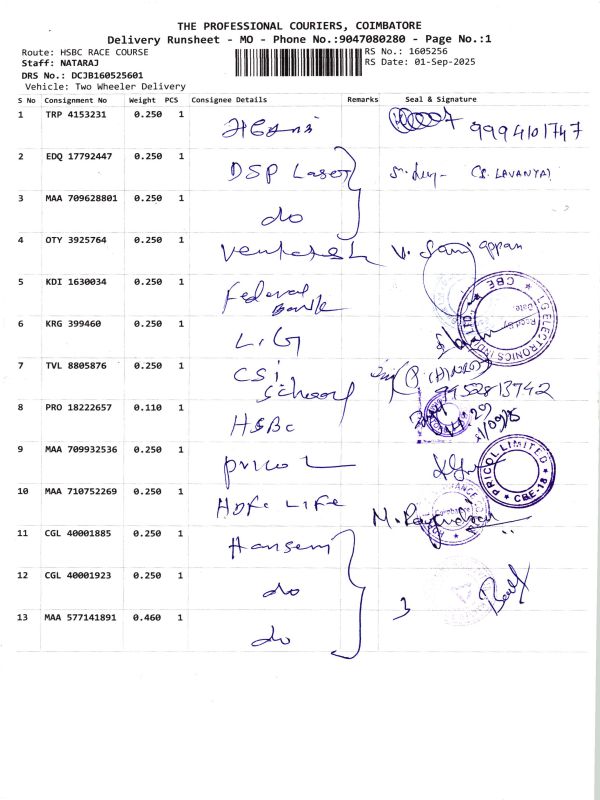 THE PROFESSIONAL COURIERS, COIMBATORE
Delivery Runsheet - MO - Phone No.:9047080280 - Page No.:1
Route: HSBC RACE COURSE
RS No.: 1605256
Staff: NATARAJ
RS Date: 01-Sep-2025
DRS No.: DCJB160525601
Vehicle: Two Wheeler Delivery
S No Consignment No Weight PCS Consignee Details Remarks Seal & Signature
1 TRP 4153231 0.250 1 9994101747
2 EDQ 17792447 0.250 1 DSP Laser (S. LAVANYA)
3 MAA 709628801 0.250 1 do
4 OTY 3925764 0.250 1 Venkatesh V. Samiappan
5 KDI 1630034 0.250 1 Federal Bank
LG ELECTRONICS IND LTD., CBE
6 KRG 399460 0.250 1 L.G
7 TVL 8805876 0.250 1 CSi School 9952813742
8 PRO 18222657 0.110 1 HSBC
9 MAA 709932536 0.250 1 pricol
PRICOL LIMITED CBE-18
10 MAA 710752269 0.250 1 HDFC LIFE
11 CGL 40001885 0.250 1 Hansem
12 CGL 40001923 0.250 1 do 3
13 MAA 577141891 0.460 1 do